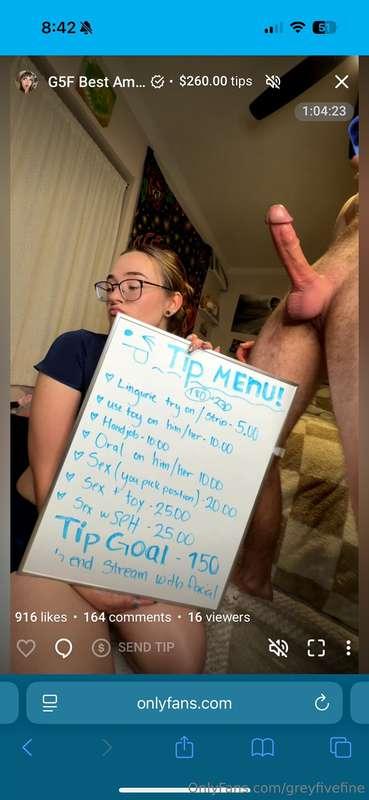 8:42
51
G5F Best Am... • $260.00 tips
1:04:23
Tip Menu!
Lingurie try on/strip - 5.00
use toy on him/her - 10.00
Handjob - 10.00
Oral on him/her 10.00
Sex (you pick position) - 20.00
Sex + toy - 25.00
Sex w SPH - 25.00
Tip Goal - 150
end stream with facial
916 likes • 164 comments • 16 viewers
SEND TIP
onlyfans.com
OnlyFans.com/greyfivefine